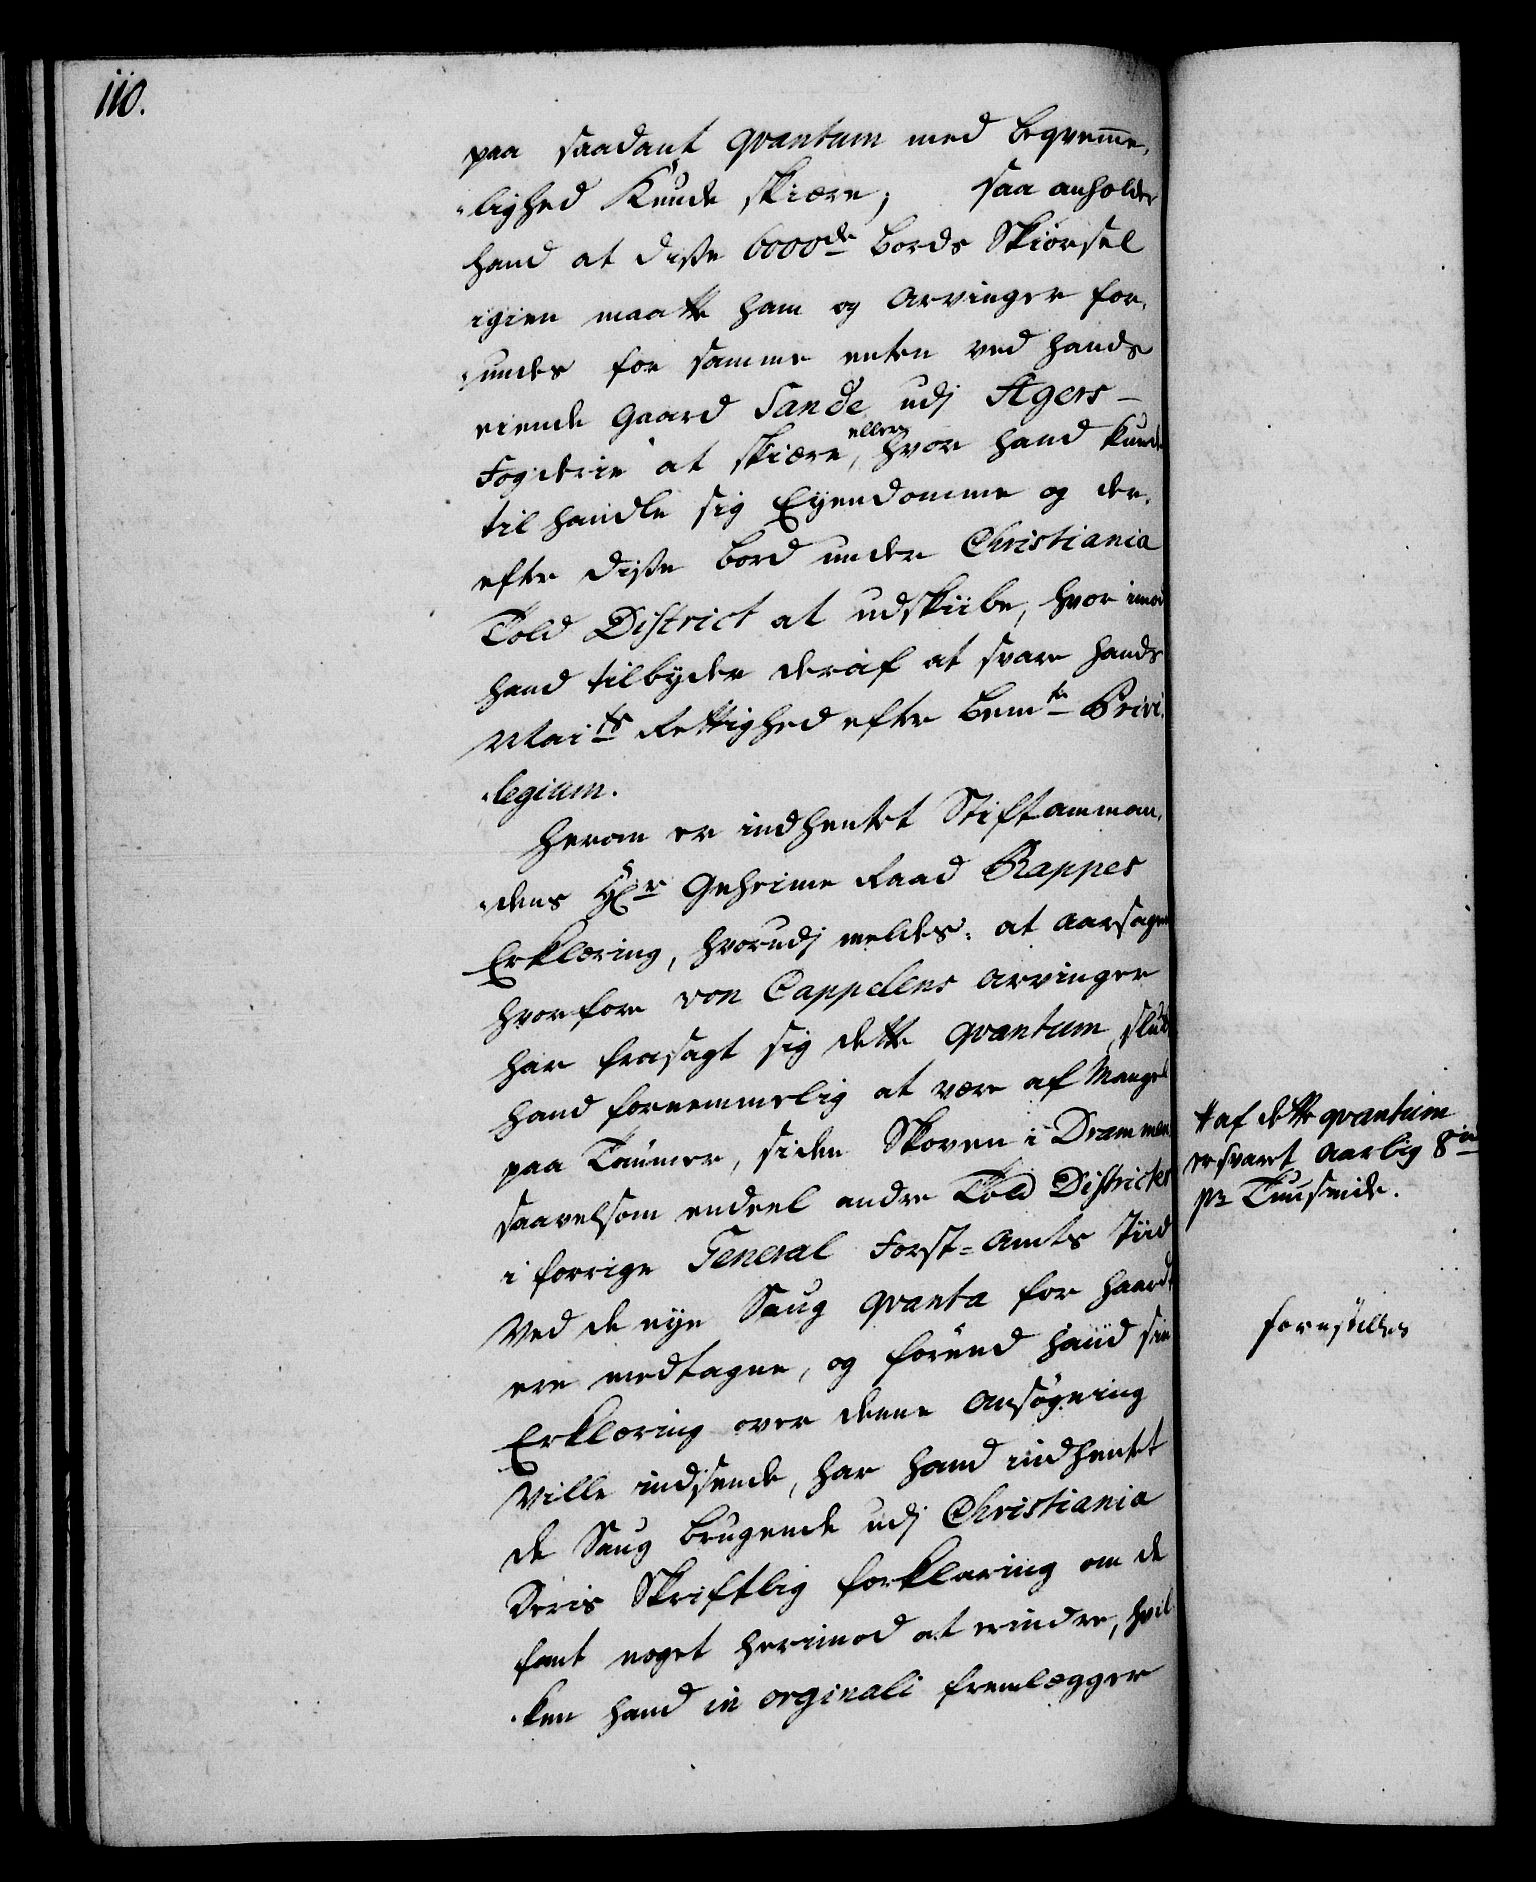 110.
paa saadant qvantum med beqvemme-
lighed Kunde skiære; saa anholder
hand at disse 6000de bords Skiørsel
igien maatte ham og Arvinger for-
undes for samme enten ved hands
eiende Gaard Sande udj Agers-
Fogderie at skiære, eller hvor hand kunde
til handle sig Eyendomme og der-
efter disse bord under Christiania
Told District at udskiibe, hvor imod
hand tilbyder deraf at svare hands
Maits Rettighed efter bemte Privi-
legium.
Herom er indhentet Stiftamman-
dens Hr Geheime Raad Rappes
Erklæring, hvorudj meldes: at aarsagen
hvorfore von Cappelens Arvinger
har frasagt sig dette qvantum, slutter
hand fornemmelig at være af Mangel
paa Tømmer, siden Skoven i Drammen
saavelsom endeel andre Told Districter
i forrige General Forst-Amts Tiid
Ved de nye Saug qvanta for haardt
ere medtagne, og forend hand sin
Erklæring over denne Ansøgning
Ville indsende, har hand indhentet
de Saug brugende udj Christiania
Deris Skriftlig forklaring om de
fant noget herimod at erindre, hvil-
ken hand in orginali fremlægger
af dette qvantum
er svaret Aarlig 8
pr Tuusinde.
forestilles